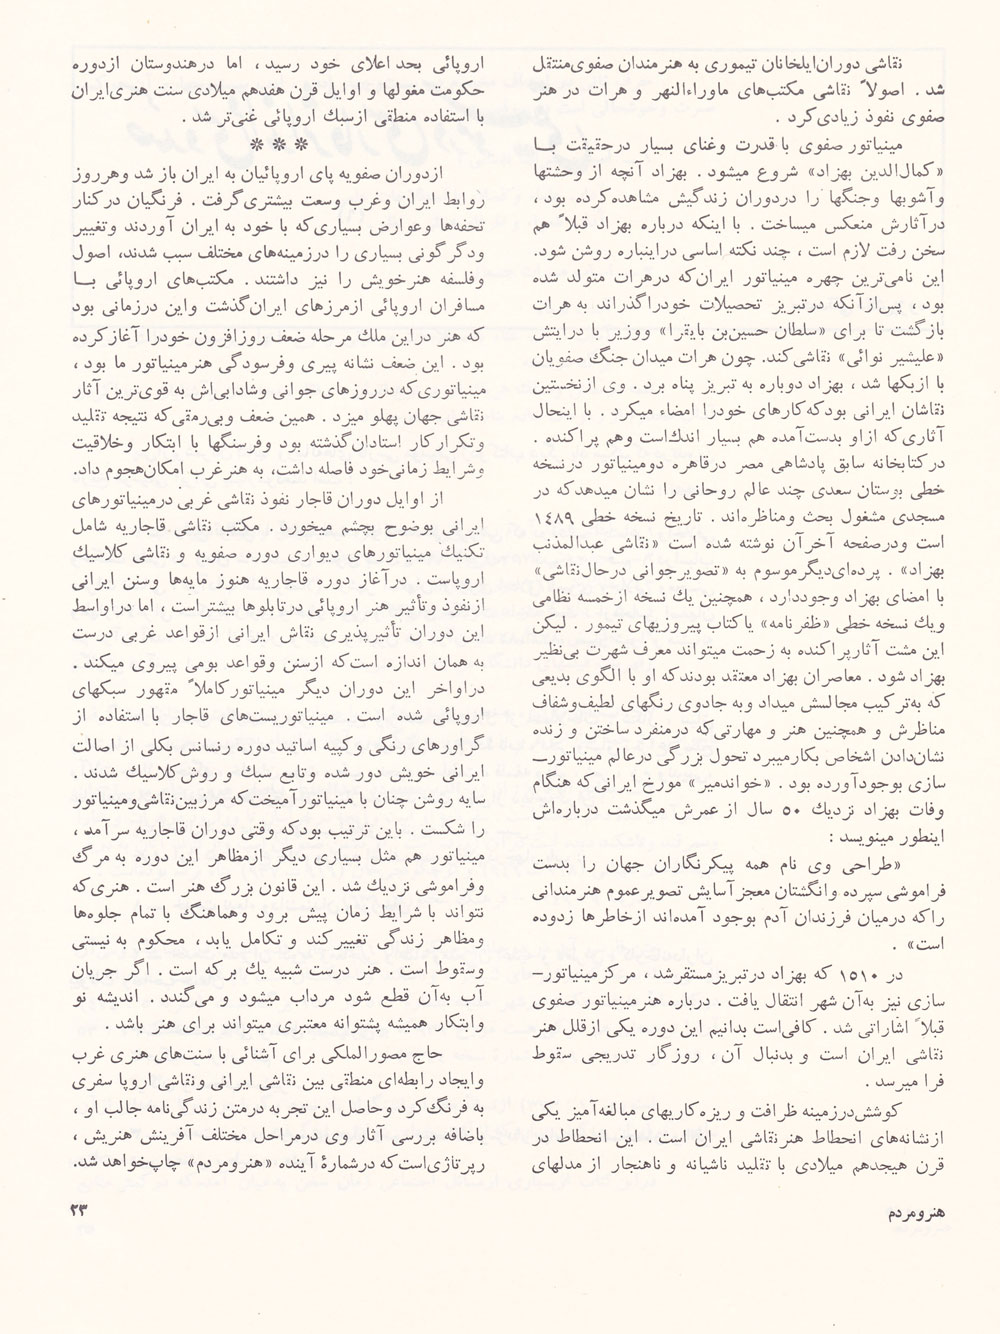 نقاشی دوران ایلخانان تیموری به هنرمندان صفوی منتقل
شد . اصولاً نقاشی مکتب‌های ماوراءالنهر و هرات در هنر
صفوی نفوذ زیادی کرد .
مینیاتور صفوی با قدرت وغنای بسیار درحقیقت بــا
«کمال‌الدین بهزاد» شروع میشود . بهزاد آنچه از وحشتها
وآشوبها وجنگها را دردوران زندگیش مشاهده کرده بود ،
درآثارش منعکس میساخت . با اینکه درباره بهزاد قبلاً هم
سخن رفت لازم است ، چند نکته اساسی دراینباره روشن شود.
این نامی‌ترین چهره مینیاتور ایران که درهرات متولد شده
بود ، پس‌ازآنکه درتبریز تحصیلات خودراگذراند به هرات
بازگشت تا برای «سلطان حسین‌بن بایقرا» ووزیر با درایتش
«علیشیر نوائی» نقاشی کند. چون هرات میدان جنگ صفویان
با ازبکها شد ، بهزاد دوباره به تبریز پناه برد . وی ازنخستین
نقاشان ایرانی بود که کارهای خودرا امضاء میکرد . با اینحال
آثاری که ازاو بدست‌آمده هم بسیار اندك‌است وهم پراکنده .
درکتابخانه سابق پادشاهی مصر درقاهره دومینیاتور درنسخه
خطی بوستان سعدی چند عالم روحانی را نشان میدهد که در
مسجدی مشغول بحث ومناظره‌اند . تاریخ نسخه خطی ۱٤۸۹
است ودرصفحه آخرآن نوشته شده است «نقاشی عبدالمذنب
بهزاد» . پرده‌ای دیگر موسوم به «تصویرجوانی درحال‌نقاشی»
با امضای بهزاد وجوددارد ، همچنین یك نسخه ازخمسه نظامی
ویك نسخه خطی «ظفرنامه» یا کتاب پیروزیهای تیمور . لیکن
این مشت آثارپراکنده به زحمت میتواند معرف شهرت بی‌نظیر
بهزاد شود . معاصران بهزاد معتقد بودند که او با الگوی بدیعی
که به‌ترکیب مجالسش میداد وبه جادوی رنگهای لطیف‌وشفاف
مناظرش و همچنین هنر و مهارتی که درمنفرد ساختن و زنده
نشان‌دادن اشخاص بکارمیبرد تحول بزرگی درعالم مینیاتور ــ
سازی بوجودآورده بود . «خواندمیر» مورخ ایرانی که هنگام
وفات بهزاد نزدیك ۵۰ سال از عمرش میگذشت درباره‌اش
اینطور مینویسد :
«طراحی وی نام همه پیکرنگاران جهان را بدست
فراموشی سپرده وانگشتان معجزآسایش تصویرعموم هنرمندانی
راکه درمیان فرزندان آدم بوجود آمده‌اند ازخاطرها زدوده
است» .
در ۱۵۱۰ که بهزاد درتبریزمستقرشد ، مرکزمینیاتور–
سازی نیز به‌آن شهر انتقال یافت . درباره هنرمینیاتور صفوی
قبلاً اشاراتی شد . کافی‌است بدانیم این دوره یکی ازقلل هنر
نقاشی ایران است و بدنبال آن ، روزگار تدریجی سقوط
فرا میرسد .
کوشش‌درزمینه ظرافت و ریزه‌کاریهای مبالغه‌آمیز یکی
ازنشانه‌های انحطاط هنرنقاشی ایران است . این انحطاط در
قرن هیجدهم میلادی با تقلید ناشیانه و ناهنجار از مدلهای
اروپائی بحداعلای خود رسید ، اما درهندوستان ازدوره
حکومت مغولها و اوایل قرن هفدهم میلادی سنت هنری‌ایران
با استفاده منطقی ازسبك اروپائی غنی‌تر شد .
* * *
ازدوران صفویه پای اروپائیان به ایران باز شد وهرروز
روابط ایران وغرب وسعت بیشتری‌گرفت . فرنگیان درکنار
تحفه‌ها وعوارض بسیاری‌که با خود به ایران آوردند وتغییر
ودگرگونی بسیاری را درزمینه‌های مختلف سبب شدند، اصول
وفلسفه هنرخویش را نیز داشتند . مکتب‌های اروپائی بــا
مسافران اروپائی ازمرزهای ایران‌گذشت واین درزمانی بود
که هنر دراین ملك مرحله ضعف روزافزون خودرا آغازکرده
بود . این ضعف نشانه پیری وفرسودگی هنرمینیاتور ما بود ،
مینیاتوری که درروزهای جوانی وشادابی‌اش به قوی‌ترین آثار
نقاشی جهان پهلو میزد . همین ضعف وبی‌رمقی که نتیجه تقلید
وتکرارکار استادان‌گذشته بود وفرسنگها با ابتکار وخلاقیت
وشرایط زمانی‌خود فاصله داشت، به هنرغرب امکان‌هجوم داد.
از اوایل دوران قاجار نفوذ نقاشی غربی درمینیاتورهای
ایرانی بوضوح بچشم میخورد . مکتب نقاشی قاجاریه شامل
تکنیك مینیاتورهای دیواری دوره صفویه و نقاشی کلاسیك
اروپاست . درآغاز دوره قاجاریه هنوز مایه‌ها وسنن ایرانی
ازنفوذ وتأثیر هنر اروپائی درتابلوها بیشتراست ، اما دراواسط
این دوران تأثیرپذیری نقاش ایرانی ازقواعد غربی درست
به همان اندازه است‌که ازسنن وقواعد بومی پیروی میکند .
دراواخر این دوران دیگر مینیاتورکاملاً مقهور سبکهای
اروپائی شده است . مینیاتوریست‌های قاجار با استفاده از
گراورهای رنگی وکپیه اساتید دوره رنسانس بکلی از اصالت
ایرانی خویش دور شده وتابع سبك و روش‌کلاسیك شدند .
سایه روشن چنان با مینیاتورآمیخت‌که مرزبین‌نقاشی‌ومینیاتور
را شکست . باین ترتیب بود که وقتی دوران قاجاریه سرآمد ،
مینیاتور هم مثل بسیاری دیگر ازمظاهر این دوره به مرگ
وفراموشی نزدیك شد . این قانون بزرگ هنر است . هنری که
نتواند با شرایط زمان پیش برود وهماهنگ با تمام جلوه‌ها
ومظاهر زندگی تغییرکند و تکامل یابد، محکوم به نیستی
وسقوط است . هنر درست شبیه یك برکه است . اگر جریان
آب به‌آن قطع شود مرداب میشود و می‌گندد . اندیشه نو
وابتکار همیشه پشتوانه معتبری میتواند برای هنر باشد .
حاج مصورالملکی برای آشنائی با سنت‌های هنری غرب
وایجاد رابطه‌ای منطقی بین نقاشی ایرانی ونقاشی اروپا سفری
به فرنگ‌کرد وحاصل این تجربه درمتن زندگی‌نامه جالب او ،
باضافه بررسی آثار وی درمراحل مختلف آفرینش هنریش ،
رپرتاژی‌است که درشمارهٔ آینده «هنرومردم» چاپ‌خواهد شد.
هنرومردم
۲۳